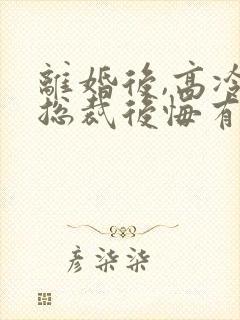 離婚後,高冷
總裁後悔有
彥柒柒